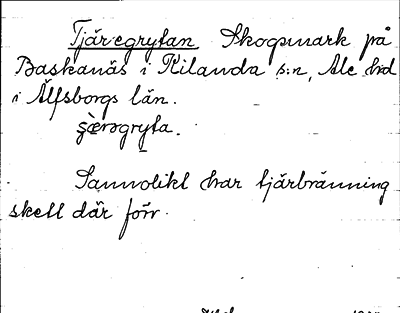 Tjäregrytan Skogsmark på
Baskanäs i Kilanda s:n, Ale hd
i Älfsborgs län.
Sannolikt har tjärbränning
skett där förr.